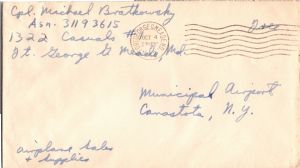 Cpl. Michael Bratkowsky
Asn. 31193615
1322 Casuals #
Ft. George G Meade, Md.
OCT 4
Free
Municipal Airport
Canastota, N.Y.
airplane Sales
& Supplies